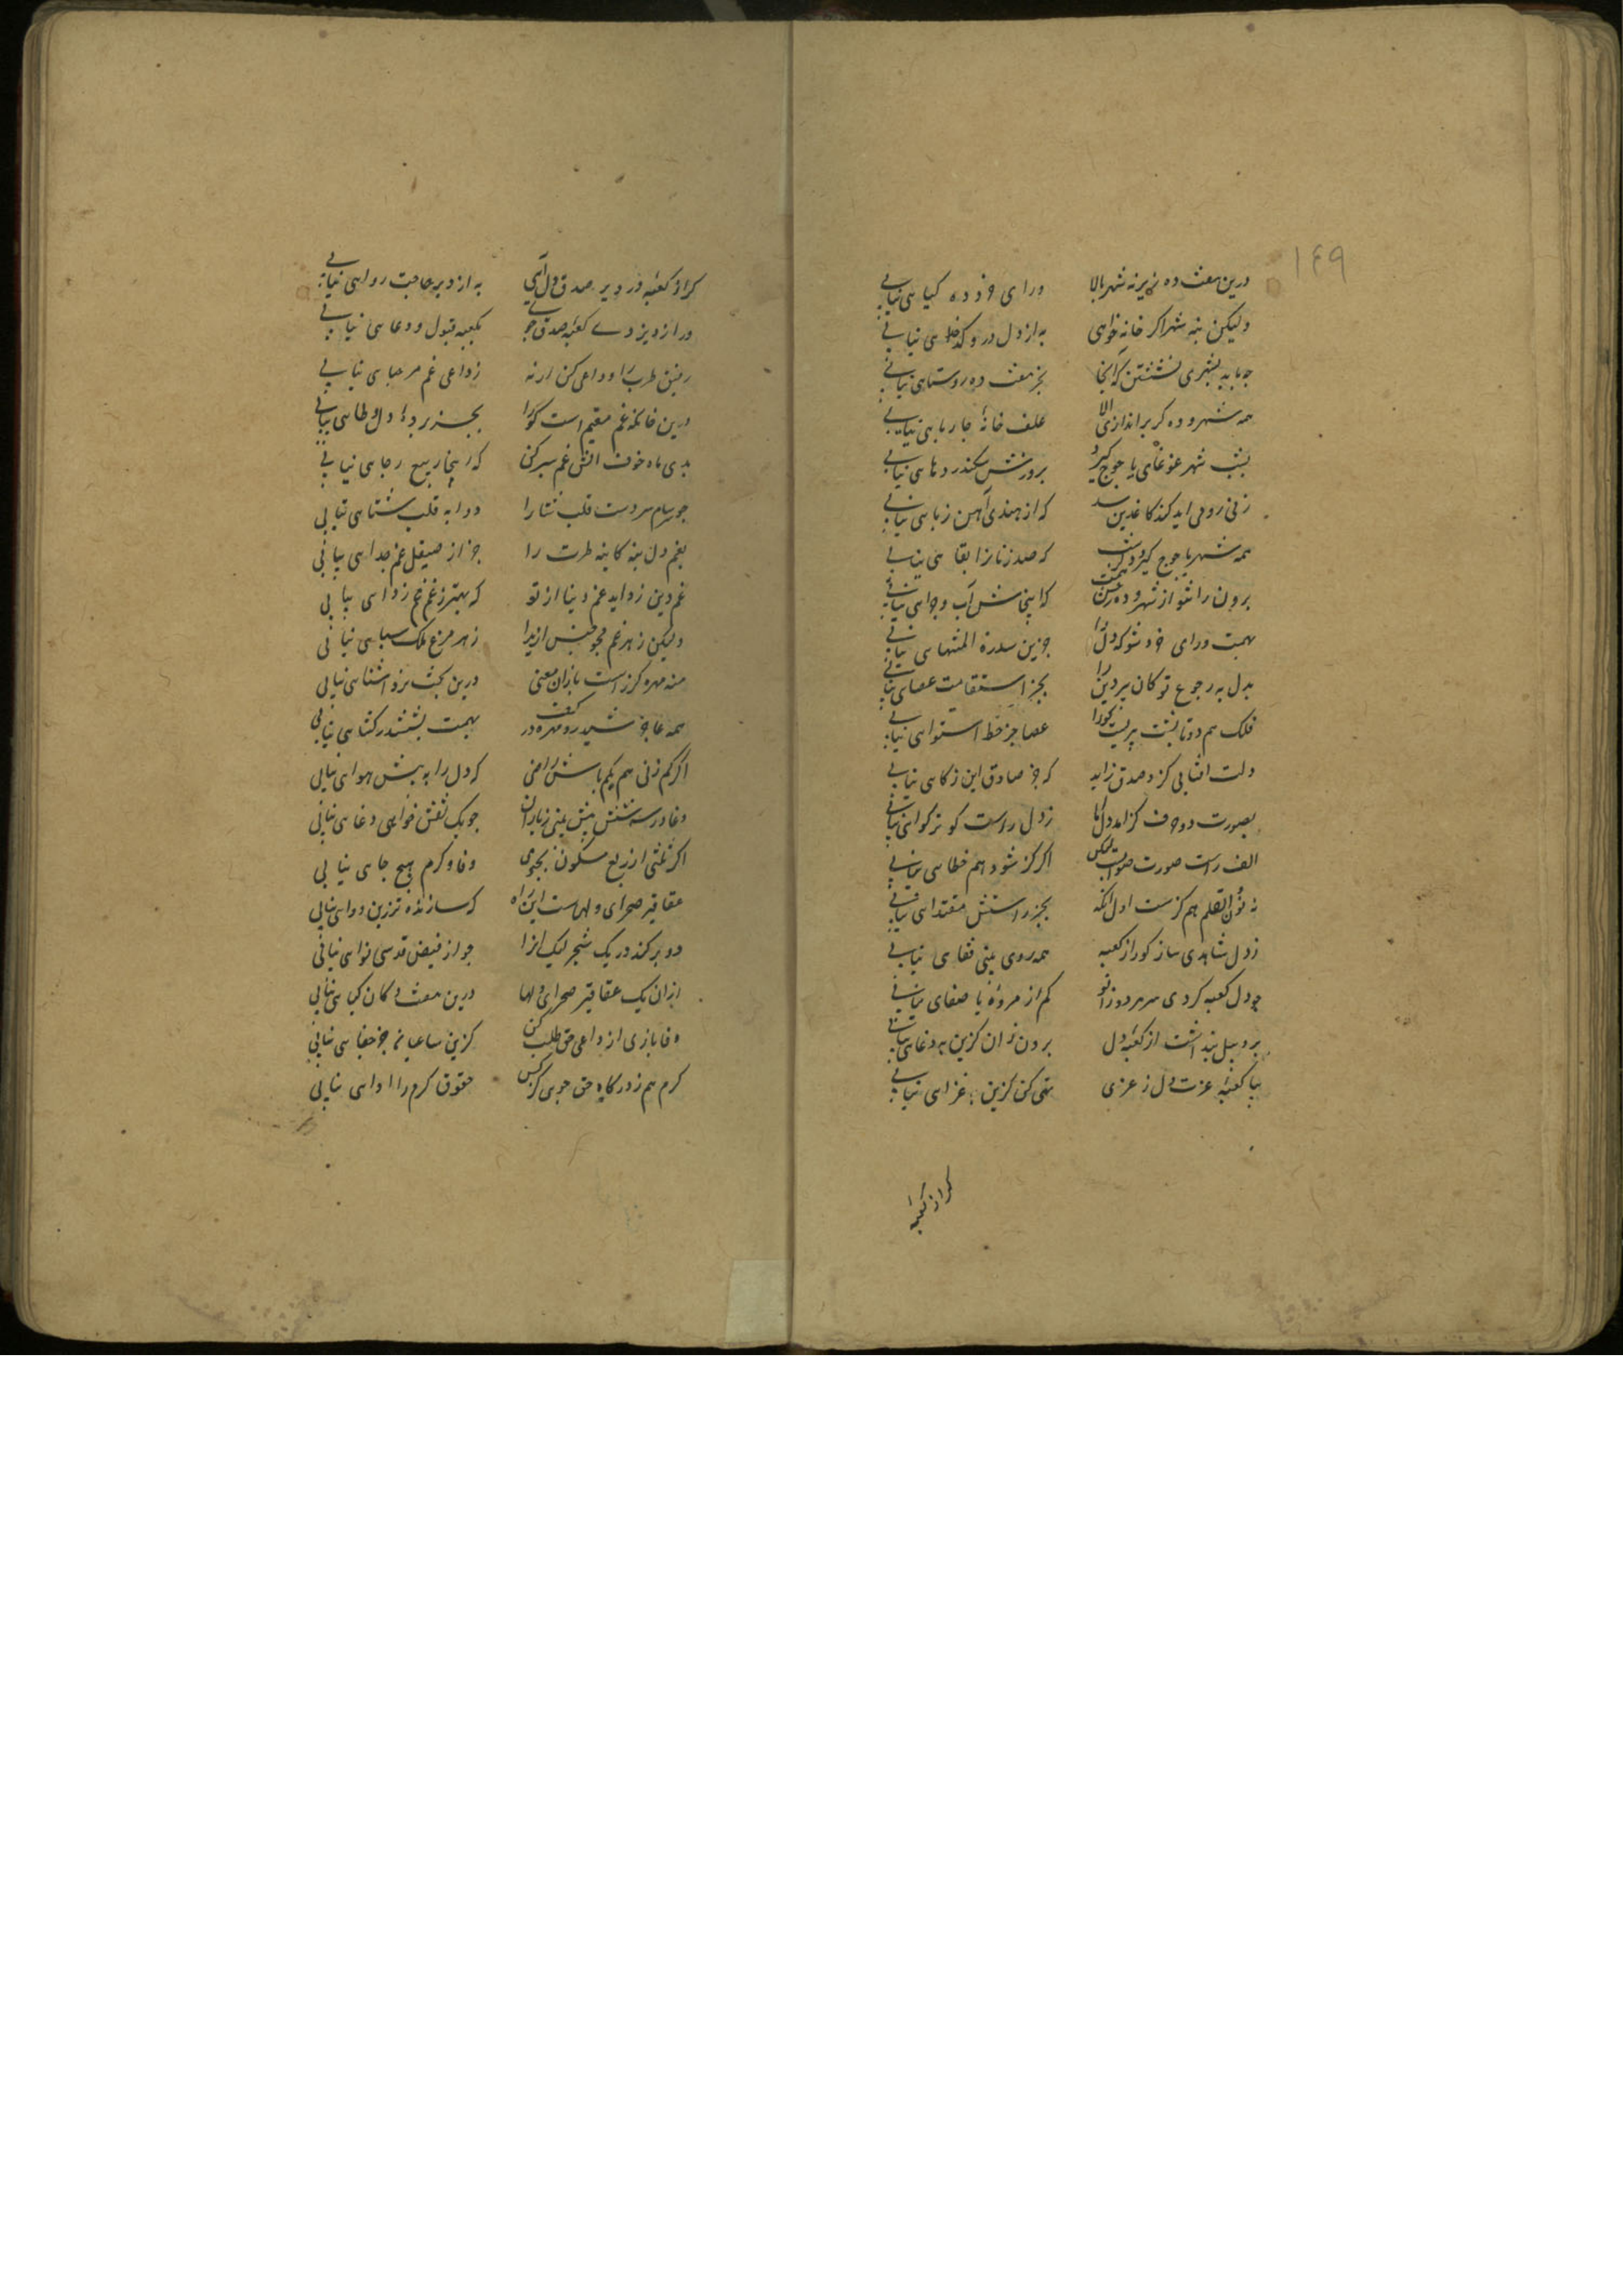 ۱۴۹
درین هفت ده زیر نه شهر بالا ورای خرد ده کیایی نیابی
ولیکن بنه شهر اگر خانه خواهی به از دل درو کدخدایی نیابی
چو باید بشهری نشستن که آنجا بجز هفت ده روستایی نیابی
همه شهر و ده گر براندازی الا علف خانه چارپایی نیابی
بشب شهر غوغای یاجوج گیرد بروزش سکندر دهایی نیابی
زنی رومی آید کند کاغذین سد که از هندی آهن زبایی نیابی
همه شهر یاجوج گیرد که صد زنانرا بقایی نیابی
برون ران ز شهر و ده کاینجاش آب و چرایی نیابی
بهمت ورای خرد شو که دل را جزین سدرة المنتهایی نیابی
بدل به رجوع تو کان پیر دین را بجز استقامت عصایی نیابی
فلک هم دوتا پشت پیریست کورا عصا جز خط استوایی نیابی
دلت آفتابی کزو صدق زاید که جز صادق این ذکایی نیابی
بصورت دو حرف کژ آمد دل اما ز دل راست گوتر گوایی نیابی
الف راست صورت صوابست لیکن اگر کژ شود هم خطایی نیابی
نه نون القلم هم کژست اول آنگه بجز راستش مقتدایی نیابی
ز دل شاهدی ساز کورا ز کعبه همه روی بینی قفایی نیابی
چو دل کعبه کردی سر هر دو زانو کم از مروه‌ یا صفایی نیابی
برو پیل پنداشت از کعبه دل برون ران کزین به دغایی نیابی
بیا کعبه عزت دل ز عزی تهی کن کزین به غزایی نیابی
گر از کعبه
گر از کعبه در دیر صدق دل آیی به از دیر حاجت روایی نیابی
ور از دیر زی کعبه بی صدق جویی بکعبه قبول و دعایی نیابی
رفیق طرب را وداعی کن ارنه ز داعی غم مرحبایی نیابی
درین خانه غم مقیم است کورا بجز پرده دل وطایی نیابی
بدی ماه خوت آتش غم سپر کن که اینجا ربیع رجایی نیابی
چو سرسام سردست قلب شتا را دوا به قلب شتایی نیابی
بغم دل بنه کاینه طرت را جز از صیقل غم جدایی نیابی
غم دین زداید غم دنیا از تو که بهتر ز غم غم زدایی نیابی
ولیکن ز هر غم مجو جنس ازیرا ز هر مرغ ملک سبایی نیابی
منه مهره کز راست بازان معنی درین بخت نزد آشنایی نیابی
همه عاجز ششدر و مهره در کف بهمت بششدر گشایی نیابی
اگر کم زنی هم بکم باش راضی که دل را به بیش هوایی نیابی
دغا در سه شش بیش بینی ز یاران چو یک نقش خواهی دغایی نیابی
اگر ثلثی از ربع مسکون بجویی وفا و کرم هیچ جایی نیابی
عقاقیر صحرای دلهاست این راه که سازنده‌تر زین دوایی نیابی
دو برگند در یک شجر لیک آنرا جز از فیض قدسی نوایی نیابی
ازان یک عقاقیر صحرای دلها درین هفت دکان کیایی نیابی
وفا بازی از داعی حق طلب کن کزین ساعیانت جز جفایی نیابی
کرم هم ز درگاه حق جوی کز کس حقوق کرم را ادایی نیابی